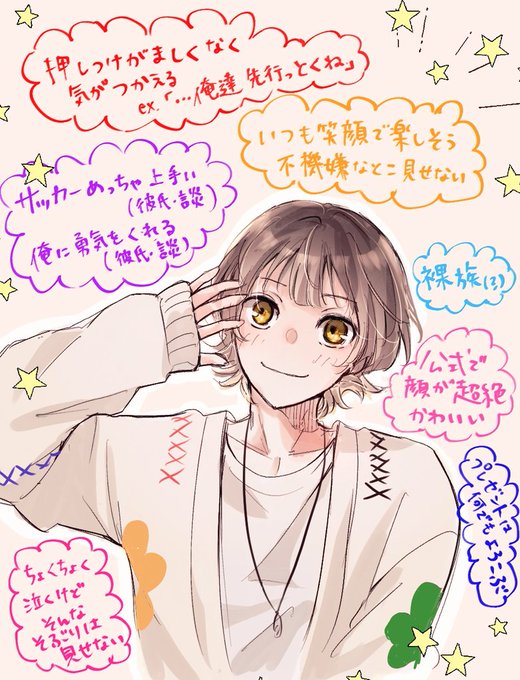 押しつけがましくなく
気がつかえる
ex.「…俺達 先行っとくね」
いつも笑顔で楽しそう
不機嫌なとこ見せない
サッカーめっちゃ上手い
(彼氏・談)
俺に勇気をくれる
(彼氏・談)
裸族(?)
公式で
顔が超絶
かわいい
プレゼントは
何でもよろこぶ
ちょくちょく
泣くけど
そんな
そぶりは
見せない